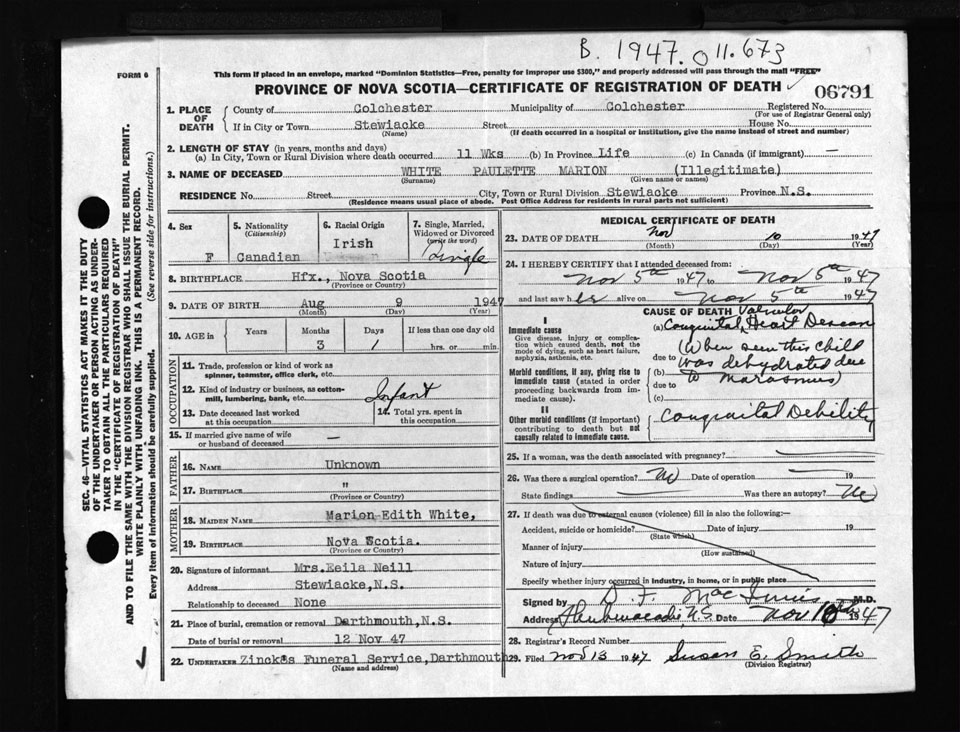 B. 1947. 011.673
FORM 6
This form if placed in an envelope, marked "Dominion Statistics—Free, penalty for improper use $300," and properly addressed will pass through the mail "FREE"
PROVINCE OF NOVA SCOTIA—CERTIFICATE OF REGISTRATION OF DEATH 06791
1. PLACE OF DEATH County of Colchester Municipality of Colchester Registered No.
(For use of Registrar General only)
If in City or Town Stewiacke Street House No.
(Name) (If death occurred in a hospital or institution, give the name instead of street and number)
2. LENGTH OF STAY (in years, months and days)
(a) In City, Town or Rural Division where death occurred 11 Wks (b) In Province Life (c) In Canada (if immigrant) —
3. NAME OF DECEASED WHITE PAULETTE MARION (Illegitimate)
(Surname) (Given name or names)
RESIDENCE No Street City, Town or Rural Division Stewiacke Province N.S.
(Residence means usual place of abode. Post Office Address for residents in rural parts not sufficient)
4. Sex F
5. Nationality (Citizenship) Canadian
6. Racial Origin Irish
7. Single, Married, Widowed or Divorced (write the word) Single
8. BIRTHPLACE Hfx., Nova Scotia
(Province or Country)
9. DATE OF BIRTH Aug 9 1947
(Month) (Day) (Year)
10. AGE in Years Months 3 Days 1 If less than one day old hrs. or min.
OCCUPATION
11. Trade, profession or kind of work as spinner, teamster, office clerk, etc.
12. Kind of industry or business, as cotton-mill, lumbering, bank, etc. Infant
13. Date deceased last worked at this occupation
14. Total yrs. spent in this occupation
15. If married give name of wife or husband of deceased —
FATHER
16. NAME Unknown
17. BIRTHPLACE "
(Province or Country)
MOTHER
18. MAIDEN NAME Marion Edith White,
19. BIRTHPLACE Nova Scotia.
(Province or Country)
20. Signature of informant Mrs. Eeila Neill
Address Stewiacke, N.S.
Relationship to deceased None
21. Place of burial, cremation or removal Darthmouth, N.S.
Date of burial or removal 12 Nov 47
22. UNDERTAKER Zinck's Funeral Service, Darthmouth
(Name and address)
MEDICAL CERTIFICATE OF DEATH
23. DATE OF DEATH Nov 10 1947
(Month) (Day) (Year)
24. I HEREBY CERTIFY that I attended deceased from:
Nov 5th 1947 to Nov 5th 1947
and last saw her alive on Nov 5th 1947
CAUSE OF DEATH
I
Immediate cause
Give disease, injury or complication which caused death, not the mode of dying, such as heart failure, asphyxia, asthenia, etc.
Morbid conditions, if any, giving rise to immediate cause (stated in order proceeding backwards from immediate cause).
II
Other morbid conditions (if important) contributing to death but not causally related to immediate cause.
Valvular
(a) Congenital Heart Disease
(When seen this child
due to
(b) was dehydrated due
due to to Marasmus)
(c)
Congenital Debility
25. If a woman, was the death associated with pregnancy?
26. Was there a surgical operation? No Date of operation 19
State findings Was there an autopsy? No
27. If death was due to external causes (violence) fill in also the following:—
Accident, suicide or homicide? Date of injury 19
(State which)
Manner of injury
(How sustained)
Nature of injury
Specify whether injury occurred in industry, in home, or in public place
Signed by D. F. MacInnis M.D.
Address Shubenacadie N.S. Date Nov 10th 1947
28. Registrar's Record Number
29. Filed Nov 13 1947 Susan E. Smith
(Division Registrar)
SEC. 46—VITAL STATISTICS ACT MAKES IT THE DUTY
OF THE UNDERTAKER OR PERSON ACTING AS UNDER-
TAKER TO OBTAIN ALL THE PARTICULARS REQUIRED
IN THE "CERTIFICATE OF REGISTRATION OF DEATH"
AND TO FILE THE SAME WITH THE DIVISION REGISTRAR WHO SHALL ISSUE THE BURIAL PERMIT.
WRITE PLAINLY WITH UNFADING INK. THIS IS A PERMANENT RECORD.
Every item of information should be carefully supplied. (See reverse side for instructions.)